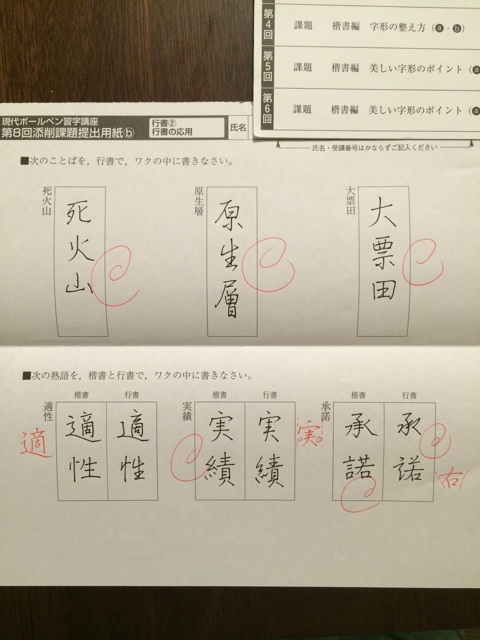 第4回 課題 楷書編 字形の整え方（ⓐ・ⓑ）
第5回 課題 楷書編 美しい字形のポイント（ⓐ
第6回 課題 楷書編 美しい字形のポイント（ⓐ
現代ボールペン習字講座
第8回添削課題提出用紙ⓑ
行書②
行書の応用
氏名
氏名・受講番号はかならずご記入ください
■次のことばを，行書で，ワクの中に書きなさい。
大票田
大票田
原生層
原生層
死火山
死火山
■次の熟語を，楷書と行書で，ワクの中に書きなさい。
楷書 行書
承諾
承諾 承諾
右
楷書 行書
実績
実績 実績
実
楷書 行書
適性
適性 適性
適